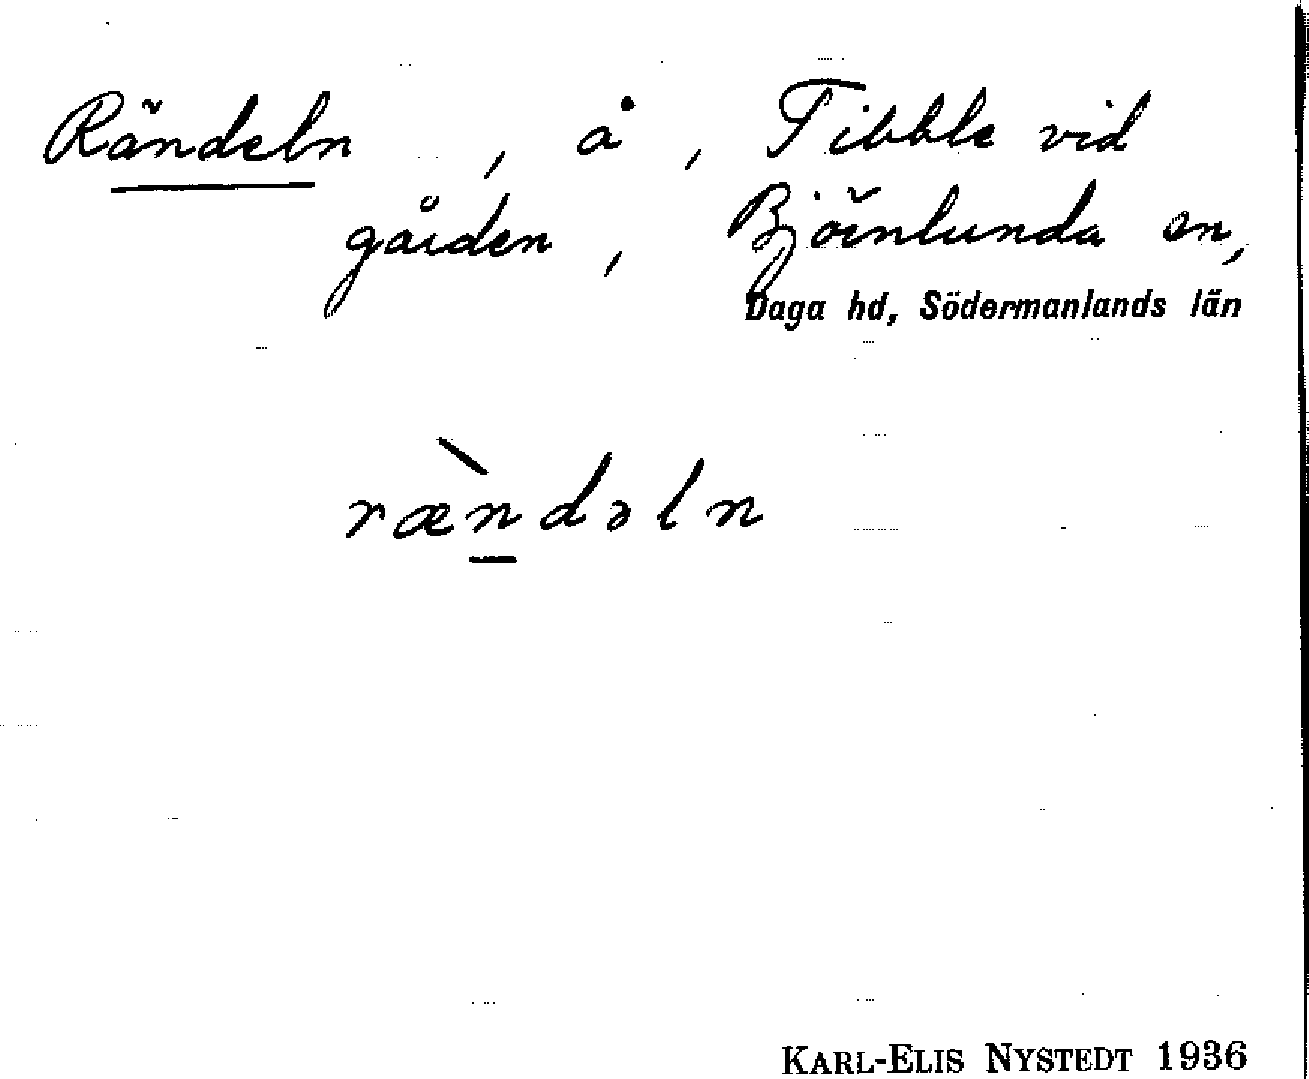 Rändeln, å, Tibble vid
gården, Björnlunda sn,
Daga hd, Södermanlands län
ræ̀n̲dəln
KARL-ELIS NYSTEDT 1936